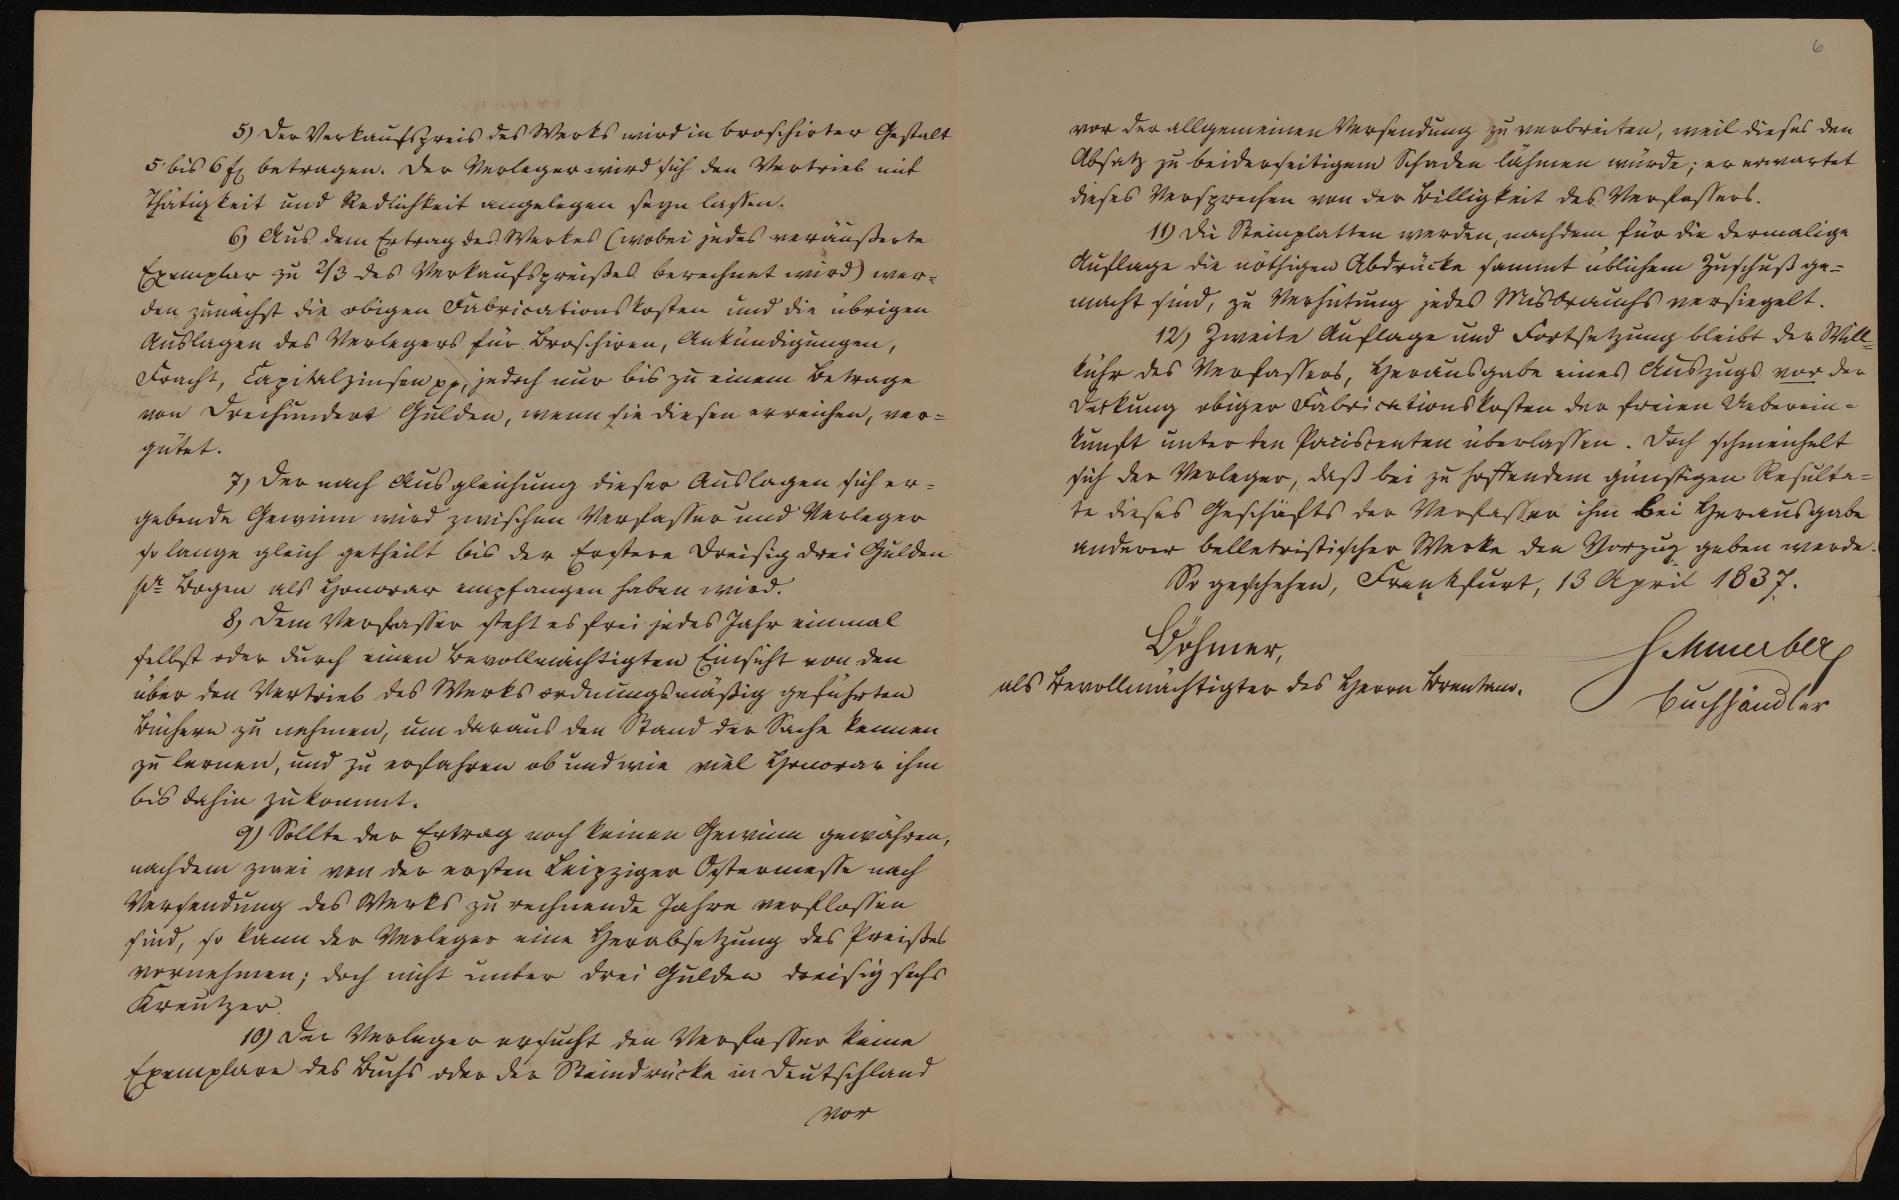 5) Der Verkaufspreis des Werks wird in broschirter Gestalt
5 bis 6 f betragen. Der Verleger wird sich den Vertrieb mit
Thätigkeit und Redlichkeit angelegen seyn lassen.
6) Aus dem Ertrag des Werkes (wobei jedes veräußerte
Exemplar zu 2/3 des Verkaufspreißes berechnet wird) wer=
den zunächst die obigen Fabricationskosten und die übrigen
Auslagen des Verlegers für Broschiren, Ankündigungen,
Fracht, Capitalzinsen pp, jedoch nur bis zu einem Betrage
von Dreihundert Gulden, wenn sie diesen erreichen, ver=
gütet.
7) Der nach Ausgleichung dieser Auslagen sich er=
gebende Gewinn wird zwischen Verfasser und Verleger
so lange gleich getheilt bis der Erstere Dreisig drei Gulden
pr Bogen als Honorar empfangen haben wird.
8) Dem Verfasser steht es frei jedes Jahr einmal
selbst oder durch einen Bevollmächtigten Einsicht von den
über den Vertrieb des Werks ordnungsmäßig geführten
Büchern zu nehmen, um daraus den Stand der Sache kennen
zu lernen, und zu erfahren ob und wie viel Honorar ihm
bis dahin zukommt.
9) Sollte der Ertrag noch keinen Gewinn gewähren,
nachdem zwei von der ersten Leipziger Ostermesse nach
Versendung des Werks zu rechnende Jahre verflossen
sind, so kann der Verleger eine Herabsetzung des Preißes
vornehmen; doch nicht unter drei Gulden dreisig sechs
Kreutzer.
10) Der Verleger ersucht den Verfasser keine
Exemplare des Buchs oder der Steindrücke in Deutschland
vor
6
vor der allgemeinen Versendung zu verbreiten, weil dieses den
Absatz zu beiderseitigem Schaden lähmen würde; er erwartet
dieses Versprechen von der Billigkeit des Verfassers.
11) Die Steinplatten werden, nachdem für die dermalige
Auflage die nöthigen Abdrücke sammt üblichem Zuschuß ge=
macht sind, zu Verhütung jedes Misbrauchs versiegelt.
12) Zweite Auflage und Fortsetzung bleibt der Will=
kühr des Verfassers, Herausgabe eines Auszugs vor der
Deckung obiger Fabricationskosten der freien Ueberein=
kunft unter den Paciscenten überlassen. Doch schmeichelt
sich der Verleger, daß bei zu hoffendem günstigen Resulta=
te dieses Geschäfts der Verfasser ihm bei Herausgabe
anderer belletristischer Werke den Vorzug geben werde.
So geschehen, Frankfurt, 13 April 1837.
Böhmer,
als Bevollmächtigter des Herrn Brentano.
Schmerber
Buchhändler